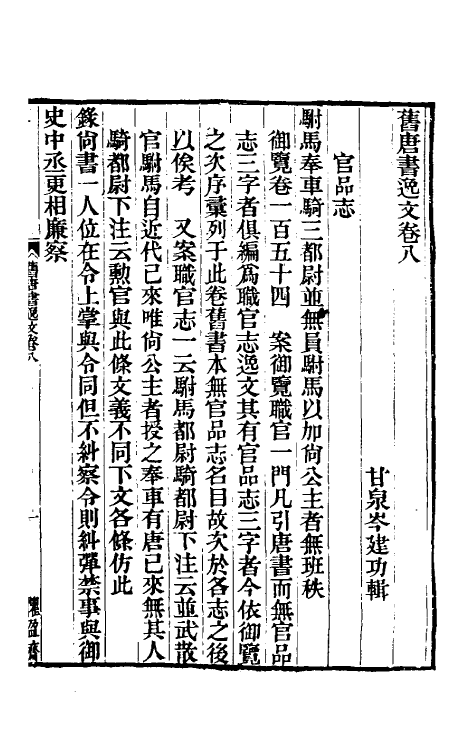 舊唐書逸文卷八
甘泉岑建功輯
官品志
駙馬奉車騎三都尉並無員駙馬以加尙公主者無班秩
御覽卷一百五十四　案御覽職官一門凡引唐書而無官品
志三字者俱編爲職官志逸文其有官品志三字者今依御覽
之次序彙列于此卷舊書本無官品志名目故次於各志之後
以俟考　又案職官志一云駙馬都尉騎都尉下注云並武散
官駙馬自近代已來唯尙公主者授之奉車有唐已來無其人
騎都尉下注云勲官與此條文義不同下文各條仿此
錄尙書一人位在令上掌與令同但不糾察令則糾彈禁事與御
史中丞更相廉察
舊唐書逸文卷八
一
懼盈齋